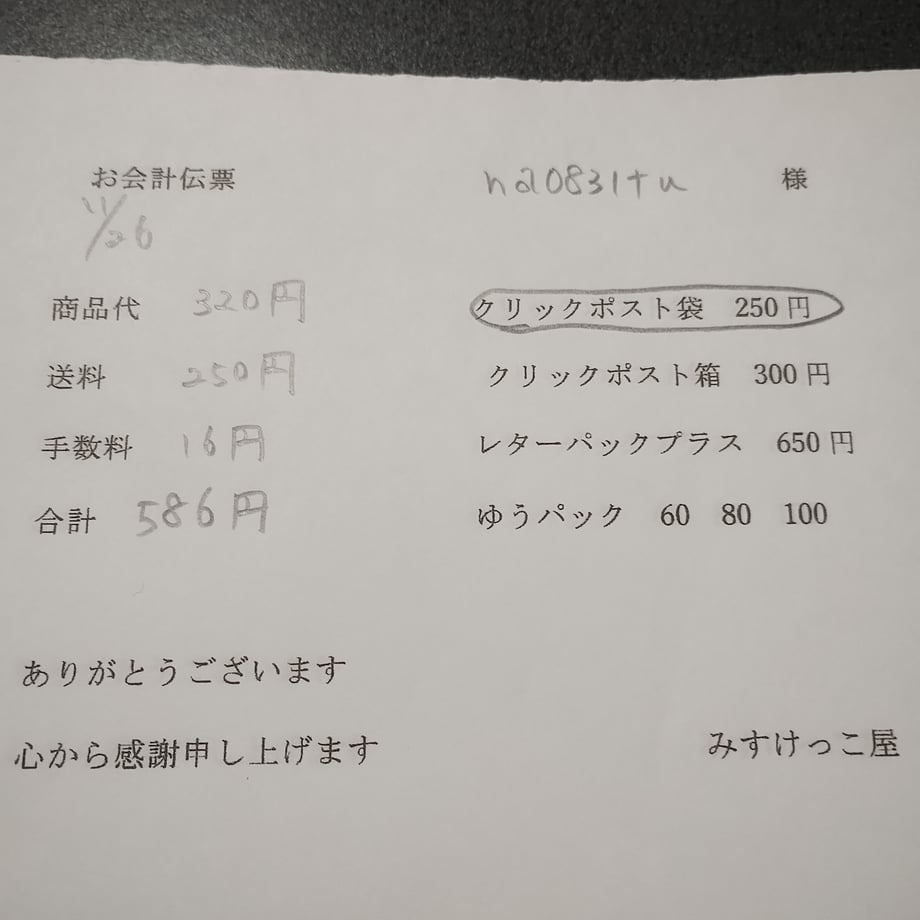 お会計伝票 na0831tu 様
11/26
商品代 320円 クリックポスト袋 250円
送料 250円 クリックポスト箱 300円
手数料 16円 レターパックプラス 650円
合計 586円 ゆうパック 60 80 100
ありがとうございます
心から感謝申し上げます みすけっこ屋